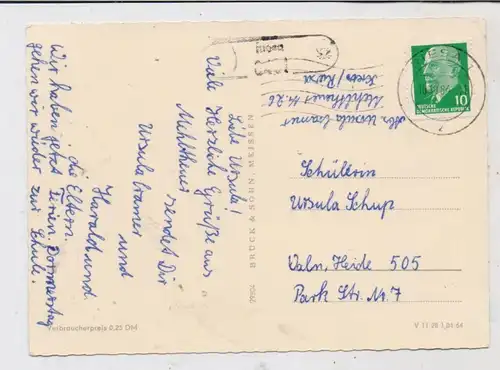 Liebe Ursula!
Viele Herzliche Grüße aus
Mehltheuer sendet Dir
Ursula Cramer
und
Harald und
die Eltern.
Wir haben jetzt Ferien. Donnerstag
gehen wir wieder zur Schule.
Abs. Ursula Cramer
Mehltheuer
Schülerin
Ursula Schup
Valn, Heide 505
Park Str. Nr. 7
BRÜCK & SOHN, MEISSEN
Verbraucherpreis 0,25 DM
V 11 28 1,84 64
DEUTSCHE
DEMOKRATISCHE REPUBLIK
10